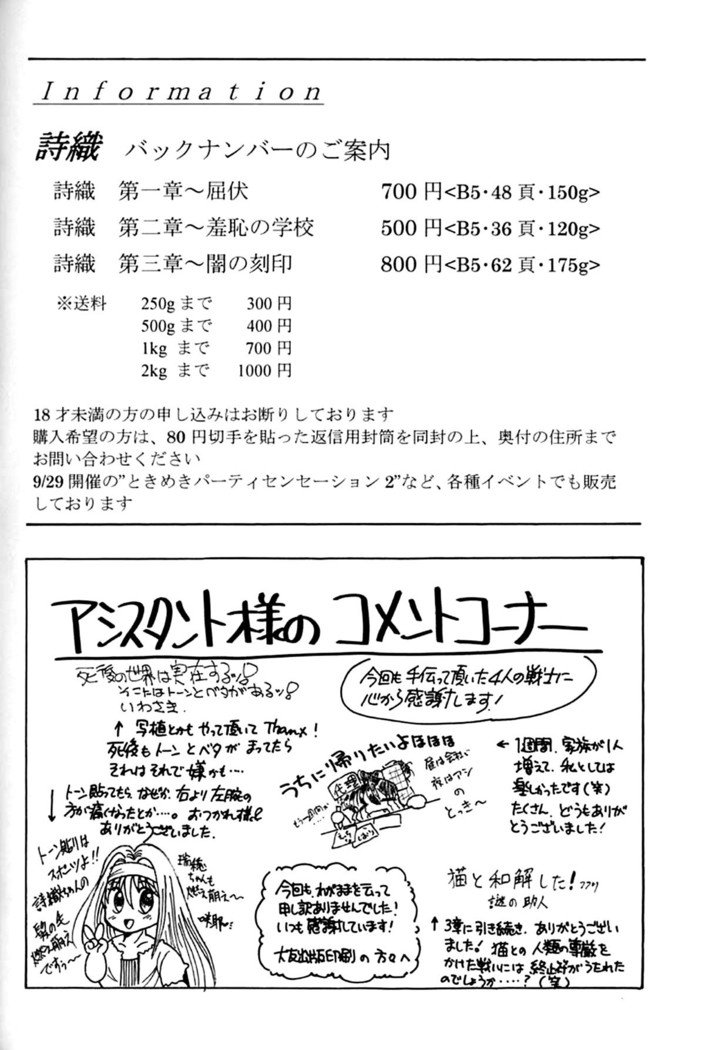 Information
詩織 バックナンバーのご案内
詩織 第一章～屈伏 700円<B5・48頁・150g>
詩織 第二章～羞恥の学校 500円<B5・36頁・120g>
詩織 第三章～闇の刻印 800円<B5・62頁・175g>
※送料 250gまで 300円
500gまで 400円
1kg まで 700円
2kg まで 1000円
18才未満の方の申し込みはお断りしております
購入希望の方は、80円切手を貼った返信用封筒を同封の上、奥付の住所まで
お問い合わせください
9/29開催の”ときめきパーティセンセーション2”など、各種イベントでも販売
しております
アシスタント様の コメントコーナー
死後の世界は実在するッ!
そこにはトーンとベタがあるッ!
いわさき
今回も手伝って頂いた4人の戦士に
心から感謝します!
↑ 写植とかも やって頂いて Thanx!
死後も トーンとベタが まってたら
それは それで 嫌かも…
うちに帰りたいよほほほ
昼は会社
夜はアシ
のとっきー
← 1週間、家族が1人
増えて、私としては
楽しかったです(笑)
たくさん、どうもありが
とうございました!
↓ トーン貼ってたら、なぜか、右より左腕の
方が痛くなったとか…。おつかれ様!
ありがとうございました。
トーン貼りは
スポーツよ!!
詩織ちゃんの
燃え萌え
ですぅ〜
瑞穂
ちゃんも
燃え萌え〜
今回も わがままを云って
申し訳ありませんでした!
いつも感謝しています!
大友出版印刷 の 方々へ
猫と和解した! フフリ
謎の助人
↑ 3章に引き続き、ありがとうござい
ました! 猫との 人類の尊厳を
かけた戦いには 終止符がうたれた
のでしょうか・・・・? (笑)